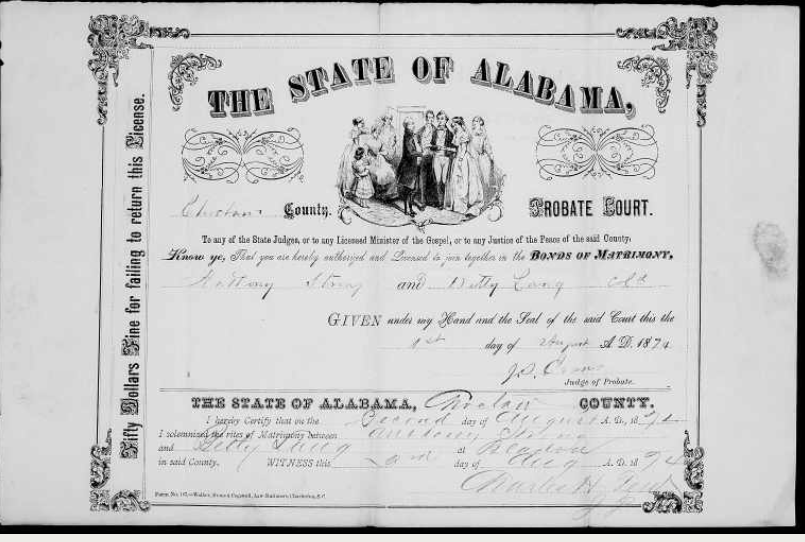 THE STATE OF ALABAMA,
Fifty Dollars Fine for failing to return this License.
Choctaw County. PROBATE COURT.
To any of the State Judges, or to any Licensed Minister of the Gospel, or to any Justice of the Peace of the said County:
Know ye, That you are hereby authorized and Licensed to join together in the BONDS OF MATRIMONY,
Anthony Strong and Betty Lang
GIVEN under my Hand and the Seal of the said Court this the
1st day of August A. D. 1874
Judge of Probate.
THE STATE OF ALABAMA, Choctaw COUNTY.
I hereby Certify that on the Second day of August A. D., 1874
I solemnized the rites of Matrimony between Anthony Strong
and Betty Lang at
in said County. WITNESS this day of Aug A. D. 1874
Charles